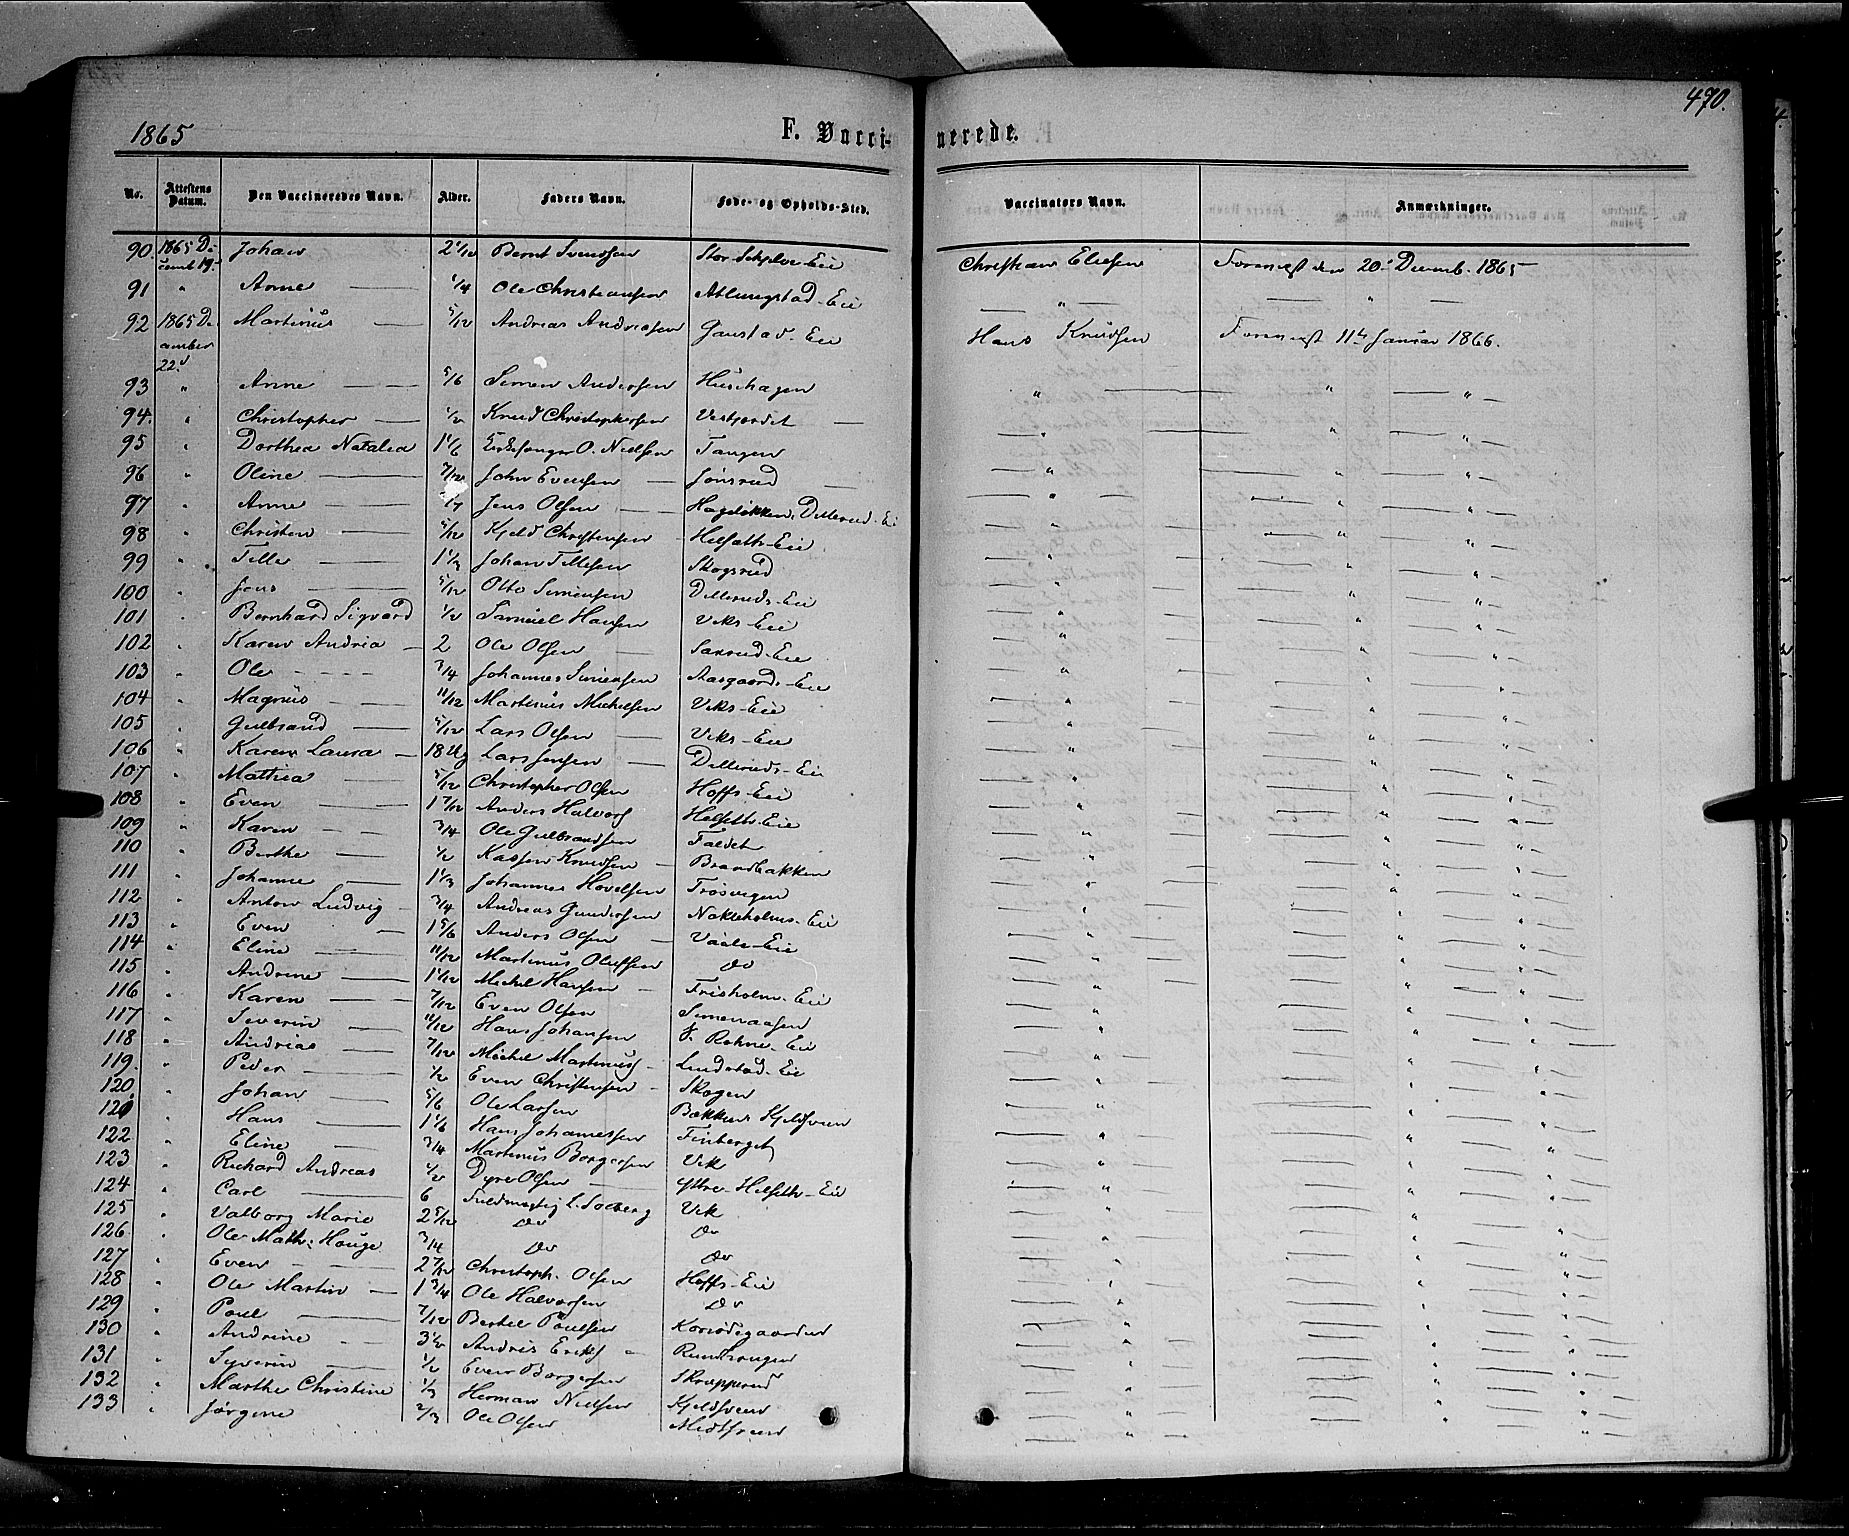 470.
1865 F. Vacci- nerede.
No. Attestens Datum. Den Vaccineredes Navn. Alder. Faders Navn. Føde- og Opholds-Sted. Vaccinators Navn. Anmærkninger.
90. 1865 De- cemb 19. Johan 2 1/12 Bernt Svendsen Stor-Schjelve-Eie Christian Eliesen Forevist den 20. Decemb. 1865
91 " Anne 1/4 Ole Christiansen Atlungstad-Eie " "
92 1865 De- cember 22. Martinus 5/12 Andreas Andreasen Gaustad-Eie Hans Knudsen Forevist 11te Januar 1866.
93 " Anne 5/6 Simen Andersen Huushagen " " "
94. " Christopher 1/2 Knud Christophersen " " "
95 " Dorthea Natalia 1 1/6 Kirkesanger O. Nielsen Tangen " " "
96 " Oline 7/12 John Evensen Jønsrud " " "
97 " Anne Jens Olsen Hageløkken, Dillerud-Ei " " "
98 " Christen 5/12 Kjeld Christensen Helseth-Eie " " "
99 " Tille 1 1/2 Johan Tillesen Skogsrud " " "
100 " Jens 5/12 Otto Simensen Dilleruds-Eie " " "
101 " Bernhard Sigvard 1/2 Samuel Hansen Viks-Eie " " "
102 " Karen Andria 2 Ole Olsen Saxrud-Eie " " "
103 " Ole 3/4 Johannes Simensen Aasgaards-Eie " " "
104 " Magnus 11/12 Martinus Michelsen Viks-Eie " " "
105 " Gulbrand 5/12 Lars Olsen Viks-Eie " " "
106 " Karen Laura 18 Ug Lars Jensen Dilleruds-Eie " " "
107 " Mathea 5/12 Christopher Olsen Hoffs-Eie " " "
108 " Even 1 7/12 Anders Halvors Helseth-Eie " " "
109 " Karen 3/4 Ole Gulbrandsen Faldet " " "
110 " Berthe 1/2 Kassen Knudsen Brandbakken " " "
111 " Johanne 1 1/3 Johannes Hovelsen Trosvigen " " "
112 " Anton Ludvig 3/4 Andreas Gundersen Nokleholms-Eie " " "
113 " Even 1 5/6 Anders Olsen Vaale-Eie " " "
114 " Eline 11/12 Martinus Olufsen Do " " "
115 " Andrine 1 1/12 Michel Hansen Frisholm-Eie " " "
116 " Karen 7/12 Even Olsen Simenaasen " " "
117 " Severin 11/12 Hans Johansen Rohne-Eie " " "
118 " Andreas 7/12 Michel Martinus Lundstad-Ei " " "
119. " Peder 1/2 Even Christensen Skogen " " "
120 " Johan 5/6 Ole Larsen Bækken Kjeldsveen " " "
121 " Hans 1 1/6 Hans Johannessen Finberget " " "
122 " Eline 3/4 Martinus Borgersen Vik " " "
123 " Richard Andreas 1/2 Dyre Olsen Ythre-Helseth-Eie " " "
124 " Carl 6 Fuldmægtig L. Solberg Vik " " "
125 " Valborg Marie 2 5/12 Do Do " " "
126 " Ole Math: Hauge 3/4 Do Do " " "
127 " Even 2 7/12 Christoph. Olsen Hoffs-Eie " " "
128 " Ole Martin 1 3/4 Ole Halvorsen Do " " "
129 " Poul 7/12 Bertel Poulsen Korsødegaarden " " "
130 " Andrine 3 1/2 Andris Eriks Rundhaugen " " "
131 " Syverin 1/2 Even Borgersen Skrapperud " " "
132 " Marthe Christine 1/3 Herman Nielsen Kjeldsveen " " "
133 " Jørgine 2/3 Ole Olsen Midtsveen " " "